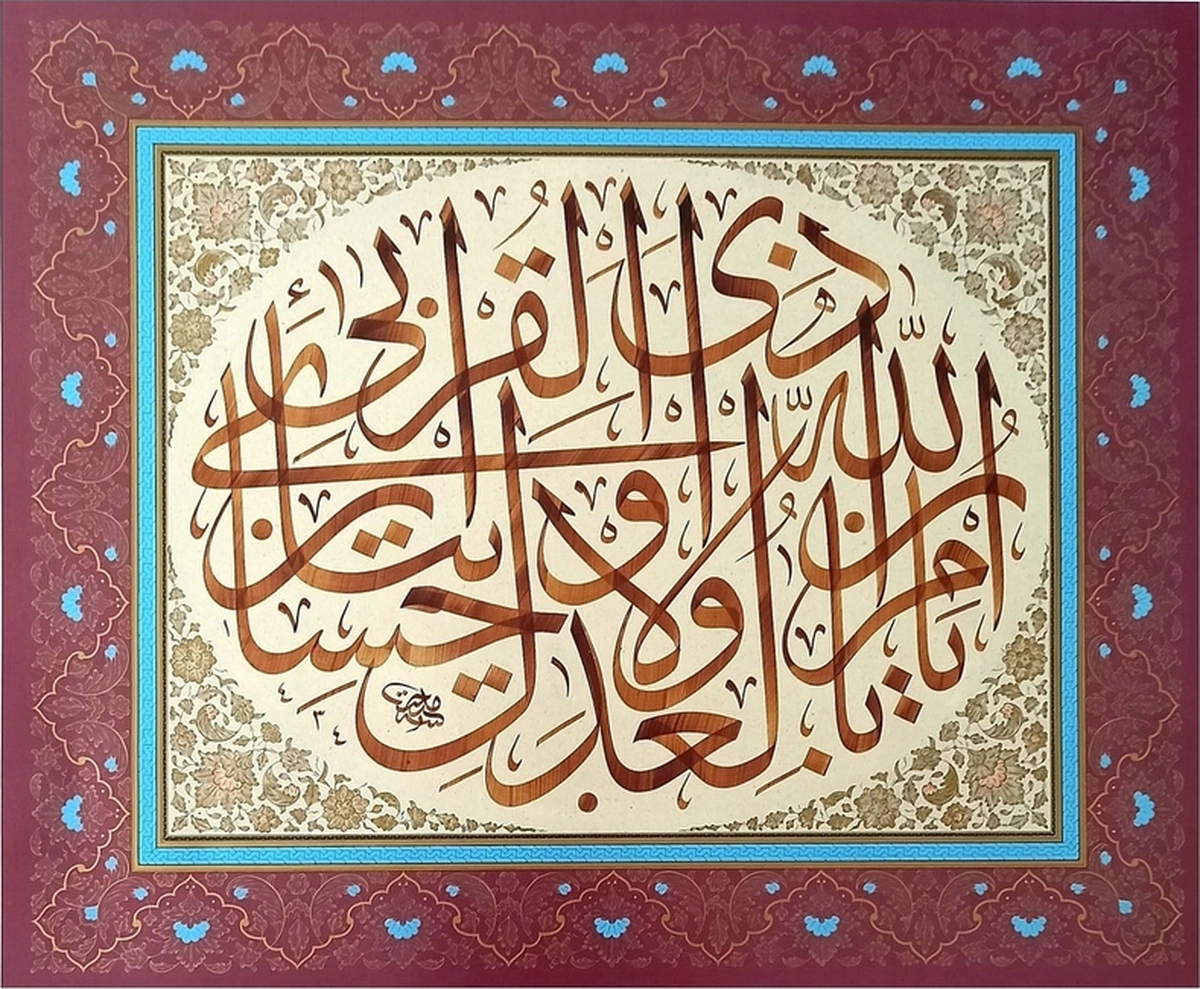 إِنَّ اللّٰهَ يَأْمُرُ بِالْعَدْلِ وَالْاِحْسَانِ وَاِيتَائِ ذِي الْقُرْبٰى